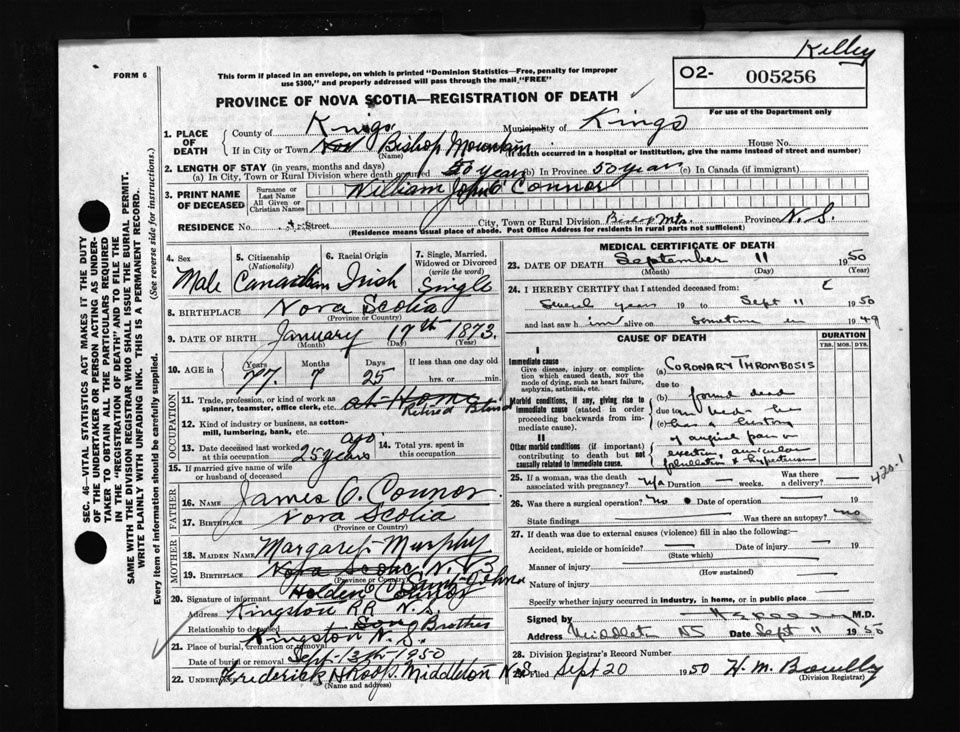 Kelley
FORM 6
This form if placed in an envelope, on which is printed "Dominion Statistics—Free, penalty for improper
use $300," and properly addressed will pass through the mail, "FREE"
O2- 005256
PROVINCE OF NOVA SCOTIA—REGISTRATION OF DEATH
For use of the Department only
1. PLACE OF DEATH
County of Kings Municipality of Kings
If in City or Town Bishop Mountain House No.
(Name) (If death occurred in a hospital or institution, give the name instead of street and number)
2. LENGTH OF STAY (in years, months and days)
(a) In City, Town or Rural Division where death occurred 50 years (b) In Province 50 year (c) In Canada (if immigrant)
3. PRINT NAME OF DECEASED
Surname or Last Name
All Given or Christian Names
William John O'Connor
RESIDENCE No. Street City, Town or Rural Division Bishop Mts. Province N. S.
(Residence means usual place of abode. Post Office Address for residents in rural parts not sufficient)
4. Sex Male
5. Citizenship (Nationality) Canadian
6. Racial Origin Irish
7. Single, Married, Widowed or Divorced (write the word) Single
8. BIRTHPLACE Nova Scotia
(Province or Country)
9. DATE OF BIRTH January 17th 1873.
(Month) (Day) (Year)
10. AGE in Years 77. Months 7 Days 25 If less than one day old
hrs. or min.
OCCUPATION
11. Trade, profession or kind of work as spinner, teamster, office clerk, etc. at Home
Retired Blind
12. Kind of industry or business, as cotton-mill, lumbering, bank, etc.
13. Date deceased last worked at this occupation 25 years ago
14. Total yrs. spent in this occupation
15. If married give name of wife or husband of deceased
FATHER
16. NAME James O. Connor
17. BIRTHPLACE Nova Scotia
(Province or Country)
MOTHER
18. MAIDEN NAME Margaret Murphy
19. BIRTHPLACE Nova Scotia N. B
(Province or Country) Saint John
20. Signature of informant Holden O'Connor
Address Kingston RR N. S.
Relationship to deceased Brother
21. Place of burial, cremation or removal Kingston N. S.
Date of burial or removal Sept. 13th 1950
22. UNDERTAKER Frederick H Roop. Middleton N. S.
(Name and address)
MEDICAL CERTIFICATE OF DEATH
23. DATE OF DEATH September 11 1950
(Month) (Day) (Year)
24. I HEREBY CERTIFY that I attended deceased from:
Several years 19 to Sept 11 1950
and last saw him alive on sometime in 1949
CAUSE OF DEATH
DURATION
YRS. MOS. DYS.
I
Immediate cause
Give disease, injury or complication which caused death, NOT the mode of dying, such as heart failure, asphyxia, asthenia, etc.
(a) CORONARY THROMBOSIS
due to
Morbid conditions, if any, giving rise to immediate cause (stated in order proceeding backwards from immediate cause).
(b) found dead
due to in bed. he
(c) has a history
of anginal pain on
II
Other morbid conditions (if important) contributing to death but not causally related to immediate cause.
exertion, auricular
fibrillation & hypertension
420.1
25. If a woman, was the death associated with pregnancy? N/A Duration — weeks. Was there a delivery? —
26. Was there a surgical operation? no Date of operation 19
State findings Was there an autopsy? no
27. If death was due to external causes (violence) fill in also the following:
Accident, suicide or homicide? Date of injury 19
(State which)
Manner of injury
(How sustained)
Nature of injury
Specify whether injury occurred in industry, in home, or in public place
Signed by M.D.
Address Middleton NS Date Sept 11 1950
28. Division Registrar's Record Number
29. Filed Sept 20 1950
(Division Registrar)
SEC. 46—VITAL STATISTICS ACT MAKES IT THE DUTY
OF THE UNDERTAKER OR PERSON ACTING AS UNDERTAKER TO OBTAIN ALL THE PARTICULARS REQUIRED
IN THE "REGISTRATION OF DEATH" AND TO FILE THE
SAME WITH THE DIVISION REGISTRAR WHO SHALL ISSUE THE BURIAL PERMIT.
WRITE PLAINLY WITH UNFADING INK. THIS IS A PERMANENT RECORD.
Every item of information should be carefully supplied. (See reverse side for instructions.)